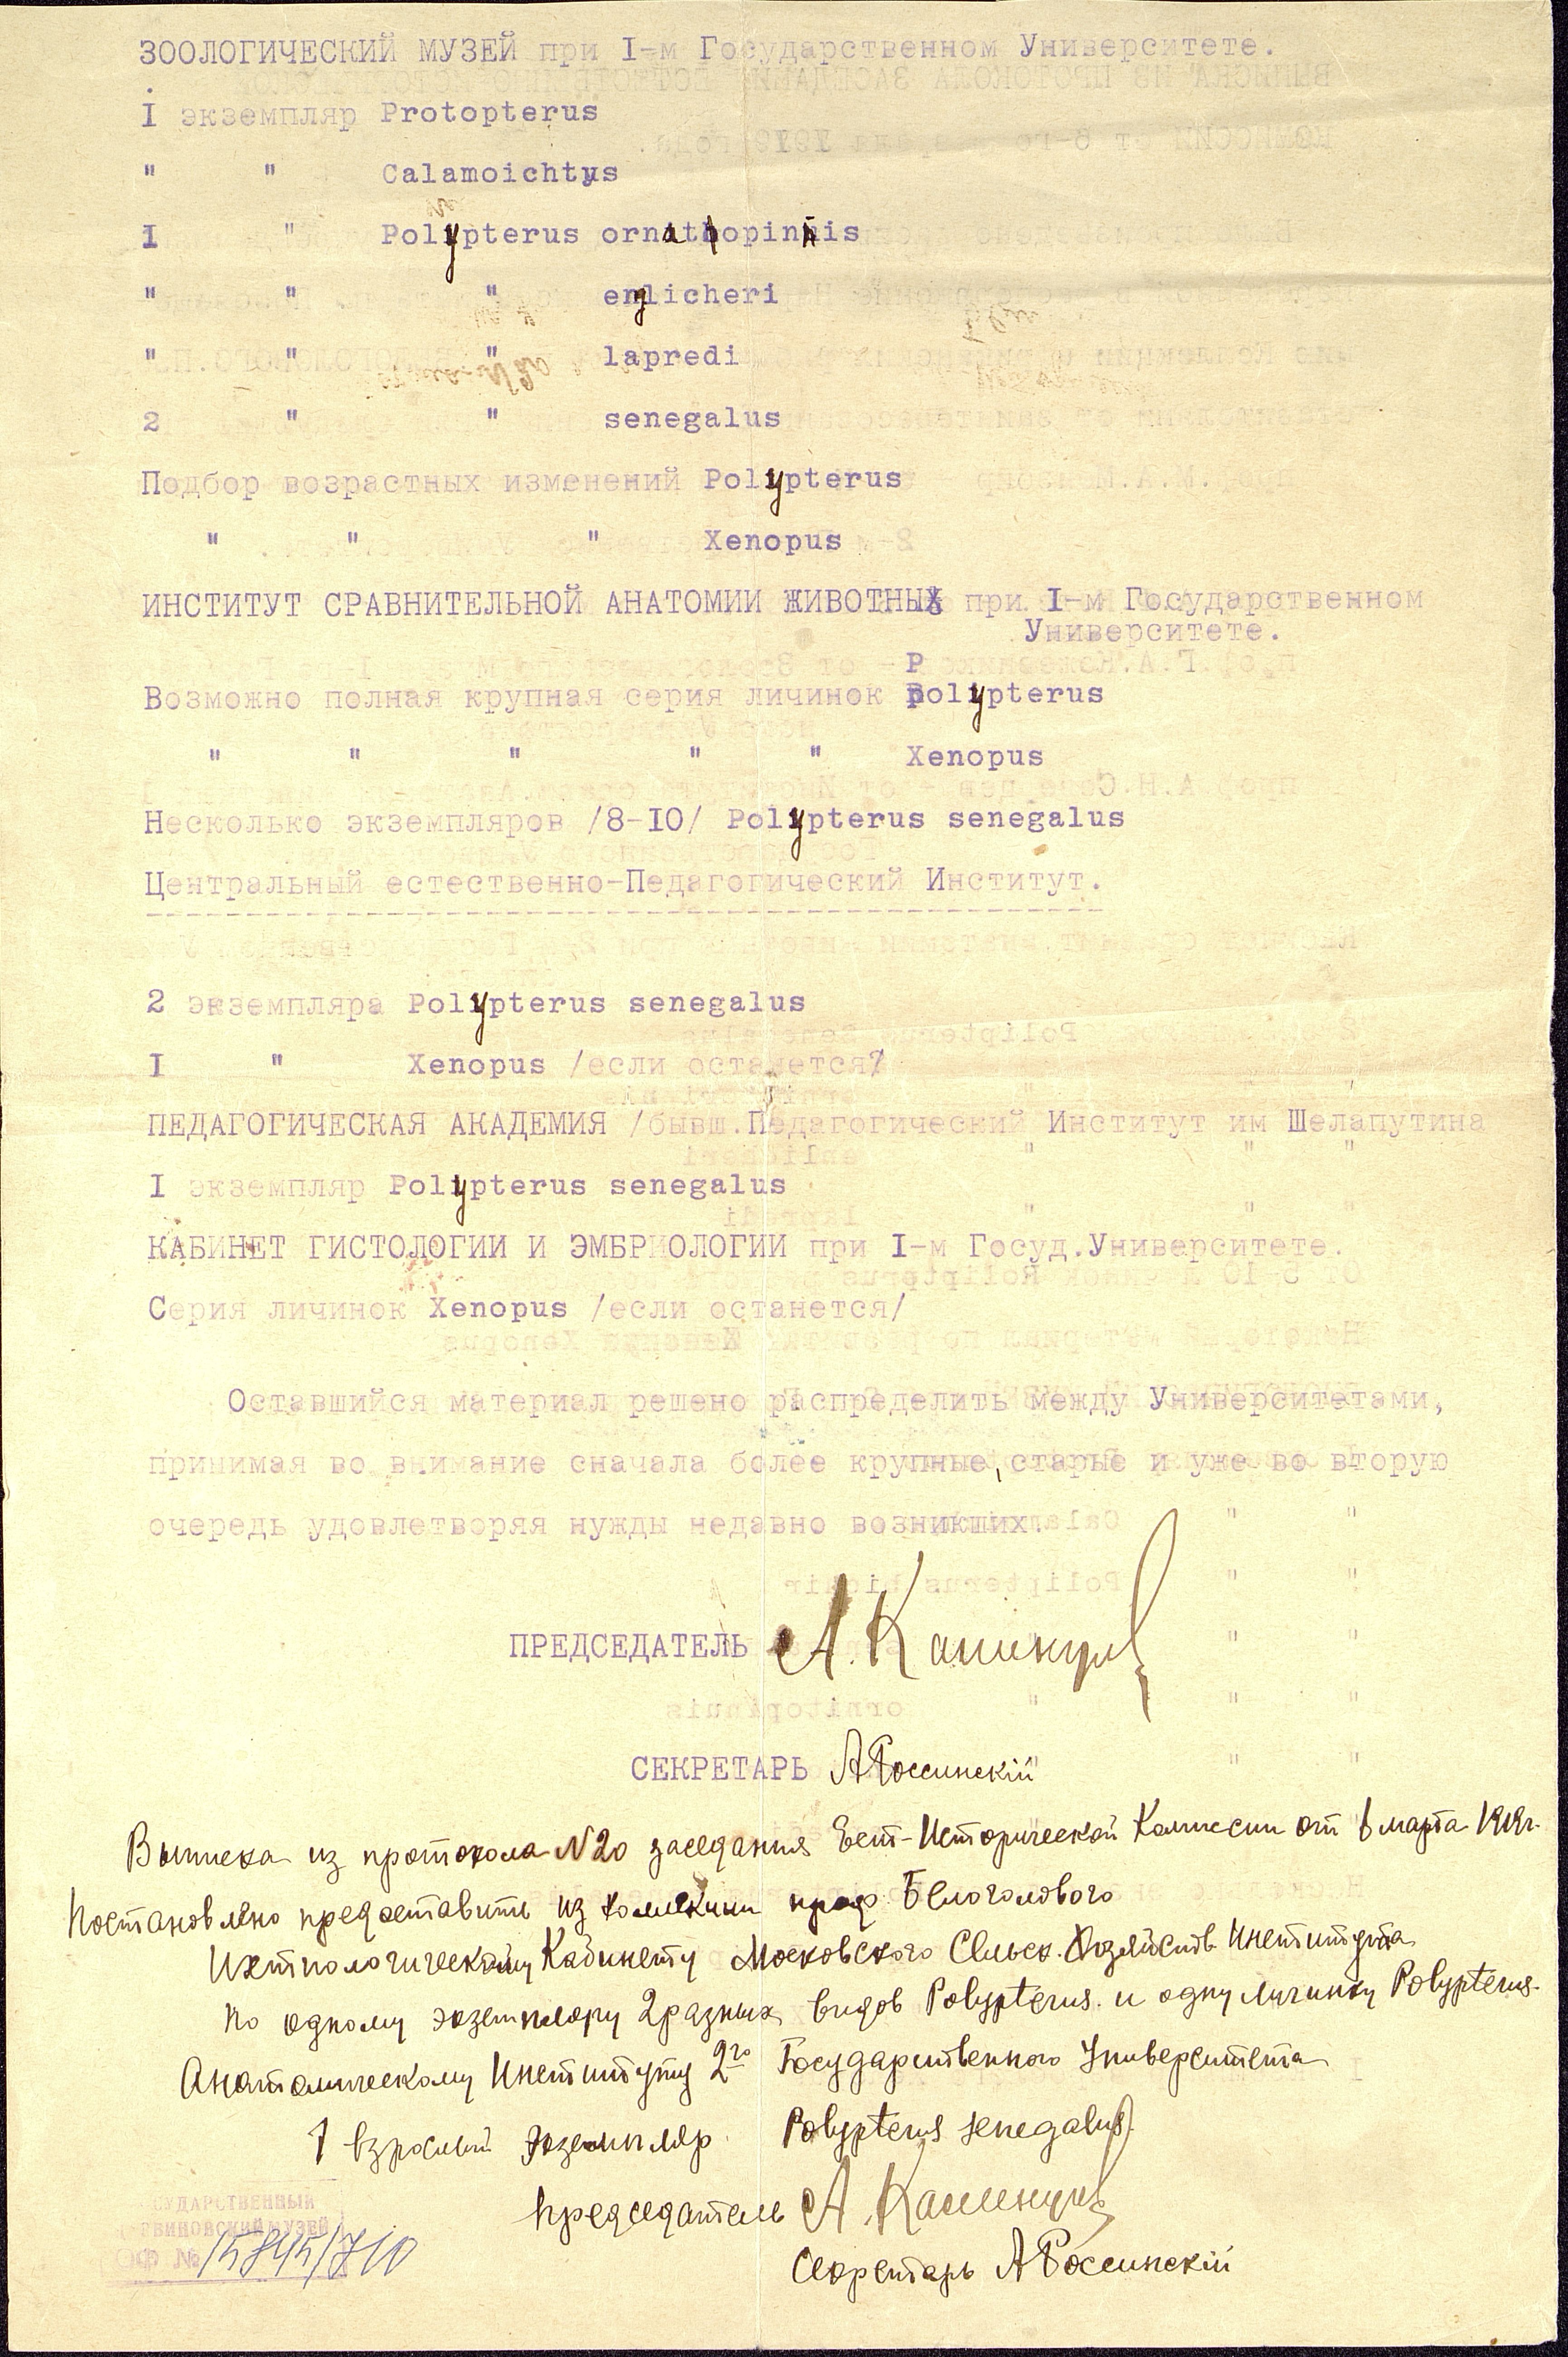 ЗООЛОГИЧЕСКИЙ МУЗЕЙ при I-м Государственном Университете.
I экземпляр Protopterus
" " Calamoichtys
I " Polypterus ornatopinnis
" " " englicheri
" " " lapredi
2 " " senegalus
Подбор возрастных изменений Polypterus
" " " Xenopus
ИНСТИТУТ СРАВНИТЕЛЬНОЙ АНАТОМИИ ЖИВОТНЫХ при I-м Государственном
Университете.
Возможно полная крупная серия личинок Polypterus
" " " " " Xenopus
Несколько экземпляров /8-IO/ Polypterus senegalus
Центральный естественно-Педагогический Институт.
2 экземпляра Polypterus senegalus
I " Xenopus /если останется/
ПЕДАГОГИЧЕСКАЯ АКАДЕМИЯ /бывш.Педагогический Институт им Шелапутина
I экземпляр Polypterus senegalus
КАБИНЕТ ГИСТОЛОГИИ И ЭМБРИОЛОГИИ при I-м Госуд.Университете.
Серия личинок Xenopus /если останется/
Оставшийся материал решено распределить между Университетами,
принимая во внимание сначала более крупные, старые и уже во вторую
очередь удовлетворяя нужды недавно возникших.
ПРЕДСЕДАТЕЛЬ А.
СЕКРЕТАРЬ А Россинскій
Выписка из протокола N 20 заседания Ест-Исторической Комиссии от 6 марта 1919г.
Постановлено предоставить из коллекции проф Белоголового
Ихтиологическому Кабинету Московского Сельск. Хозяйств Института
по одному экземпляру 2 разных видов Polypterus. и одну личинку Polypterus.
Анатомическому Институту 2го Государственного Университета
1 взрослый экземпляр Polypterus senegalus.
Председатель А.
Секретарь А Россинскій
СУДАРСТВЕННЫЙ
РВИНОВСКИЙ МУЗЕЙ
ОФ № 15845/710